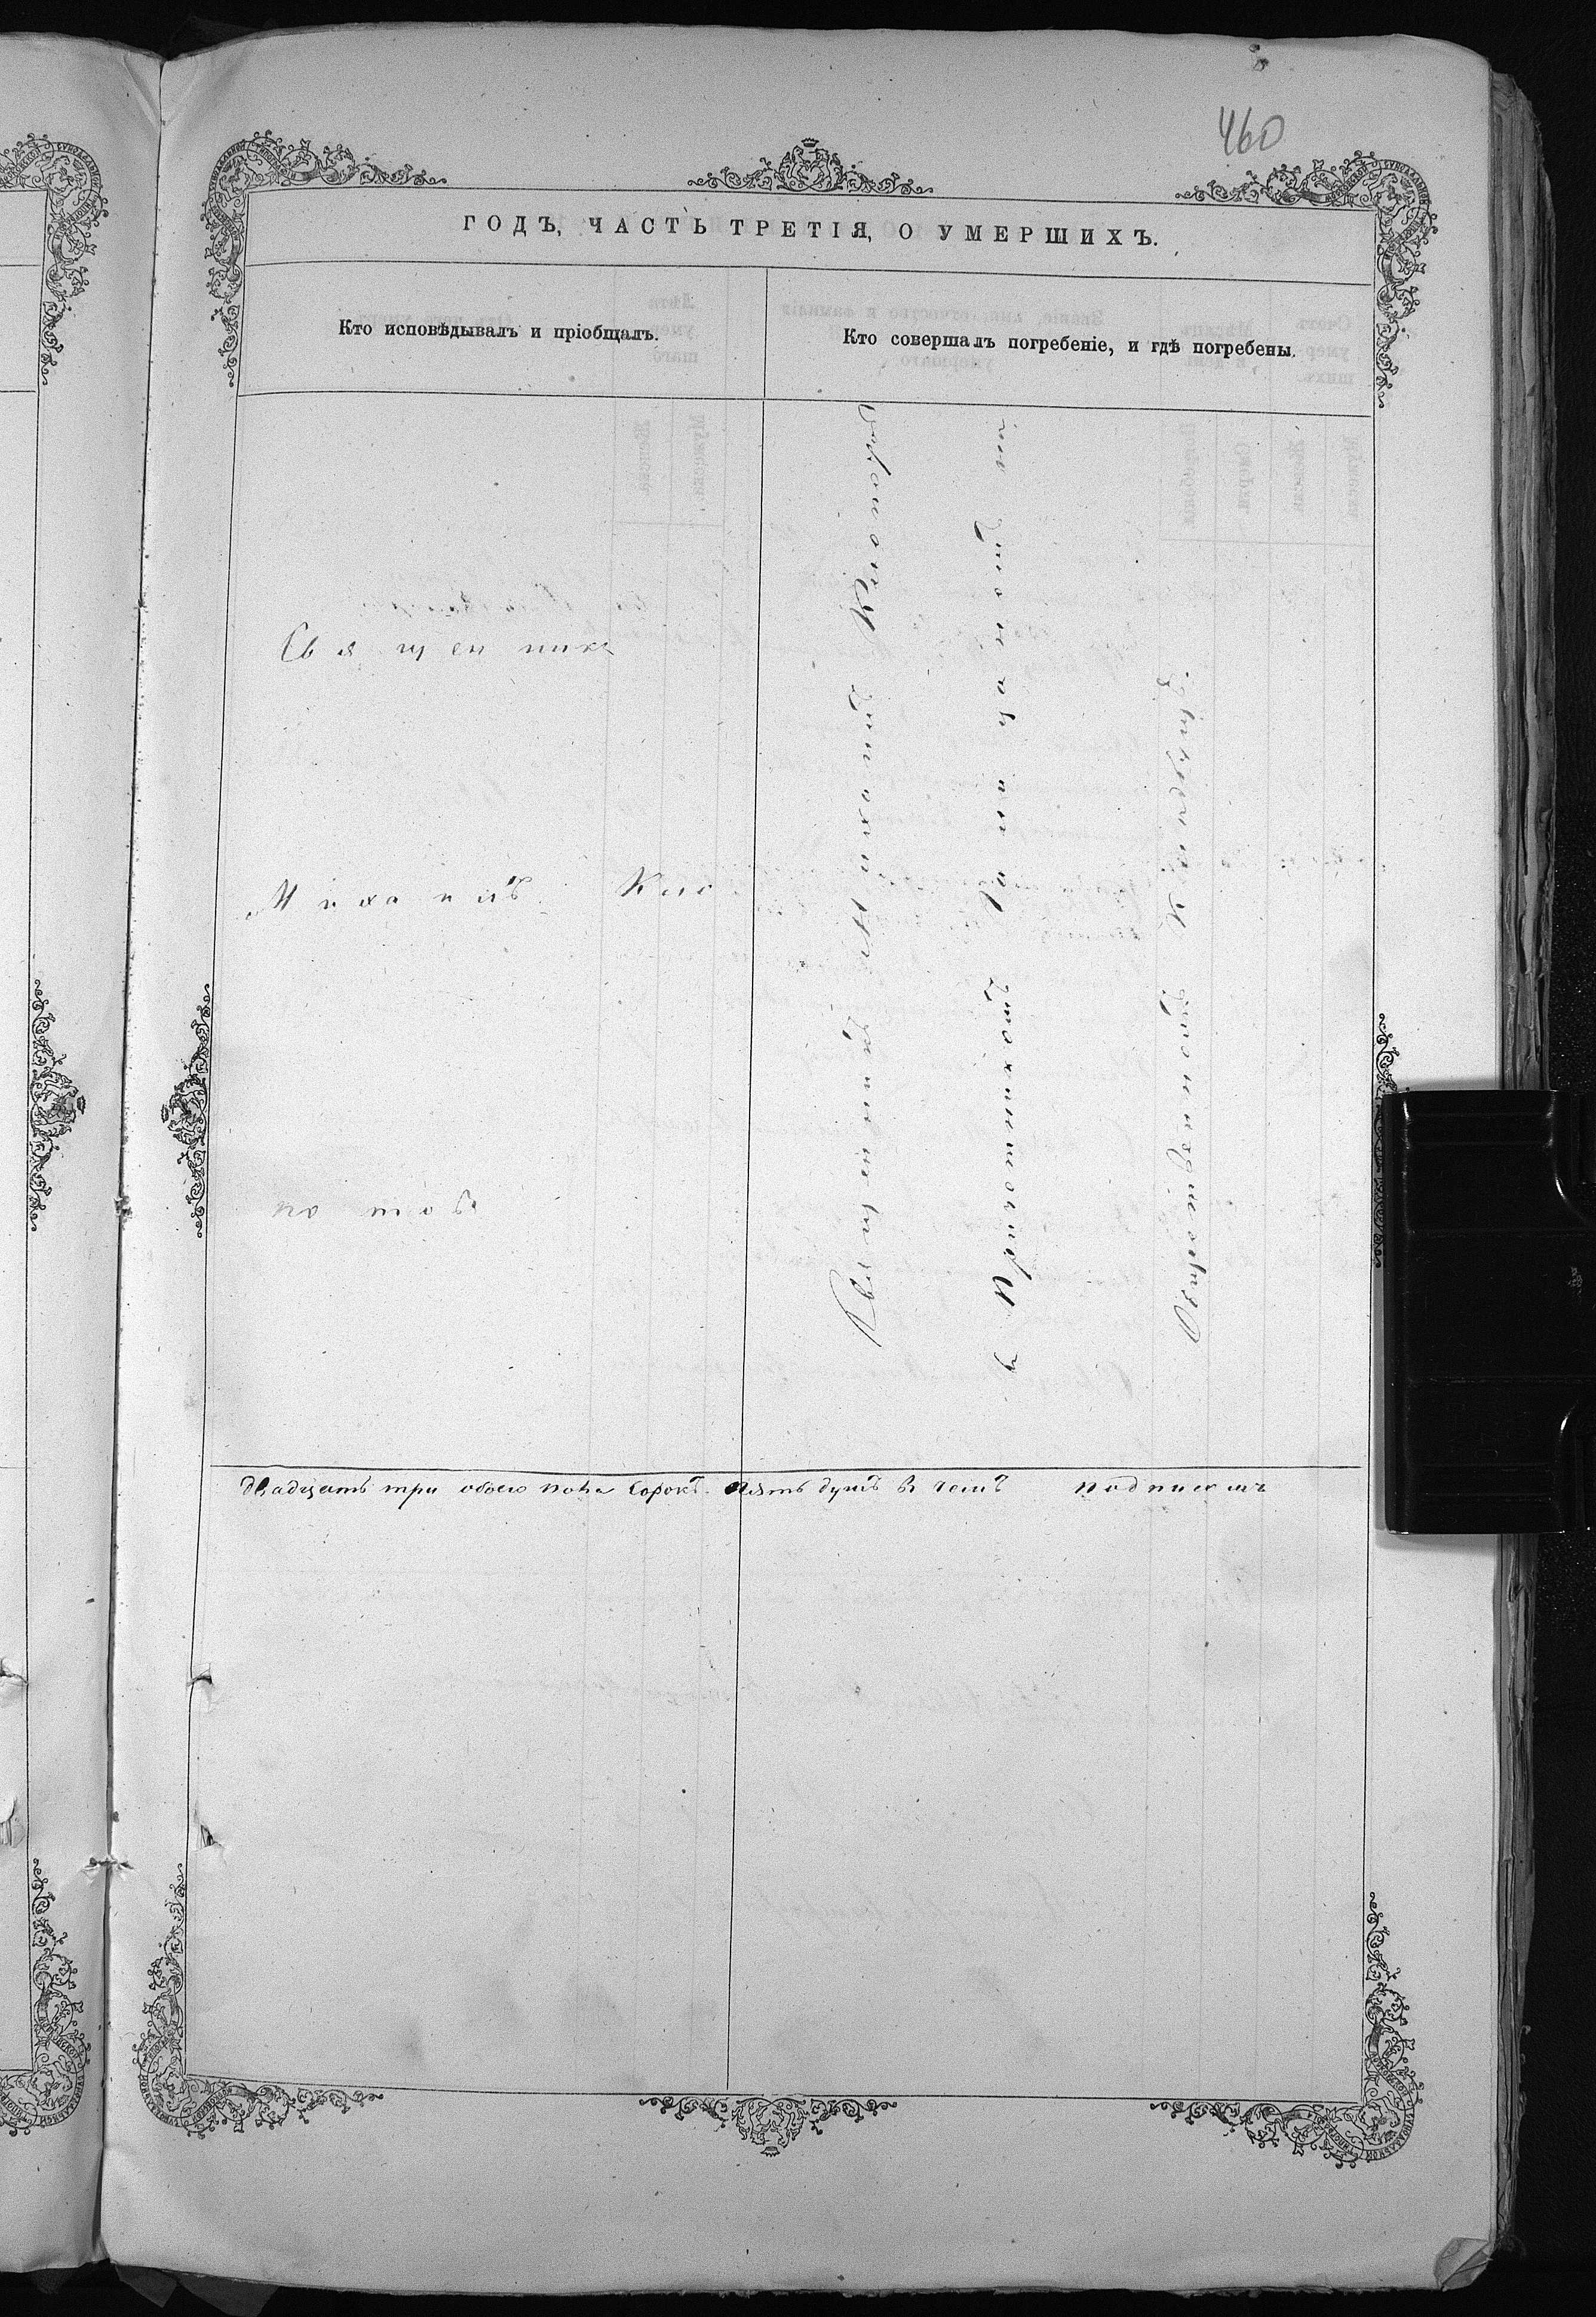 460
ГОДЪ, ЧАСТЬ ТРЕТІЯ, О УМЕРШИХЪ.
Кто исповѣдывалъ и пріобщалъ.
Кто совершалъ погребеніе, и гдѣ погребены.
Священникъ
Михаилъ Кло
потовъ
Священникъ Михаилъ Клопотовъ
на
Приходскомъ
Общественномъ Кладбищѣ
двадцать три обоего пола сорокъ пять душъ въ чемъ подпискалъ